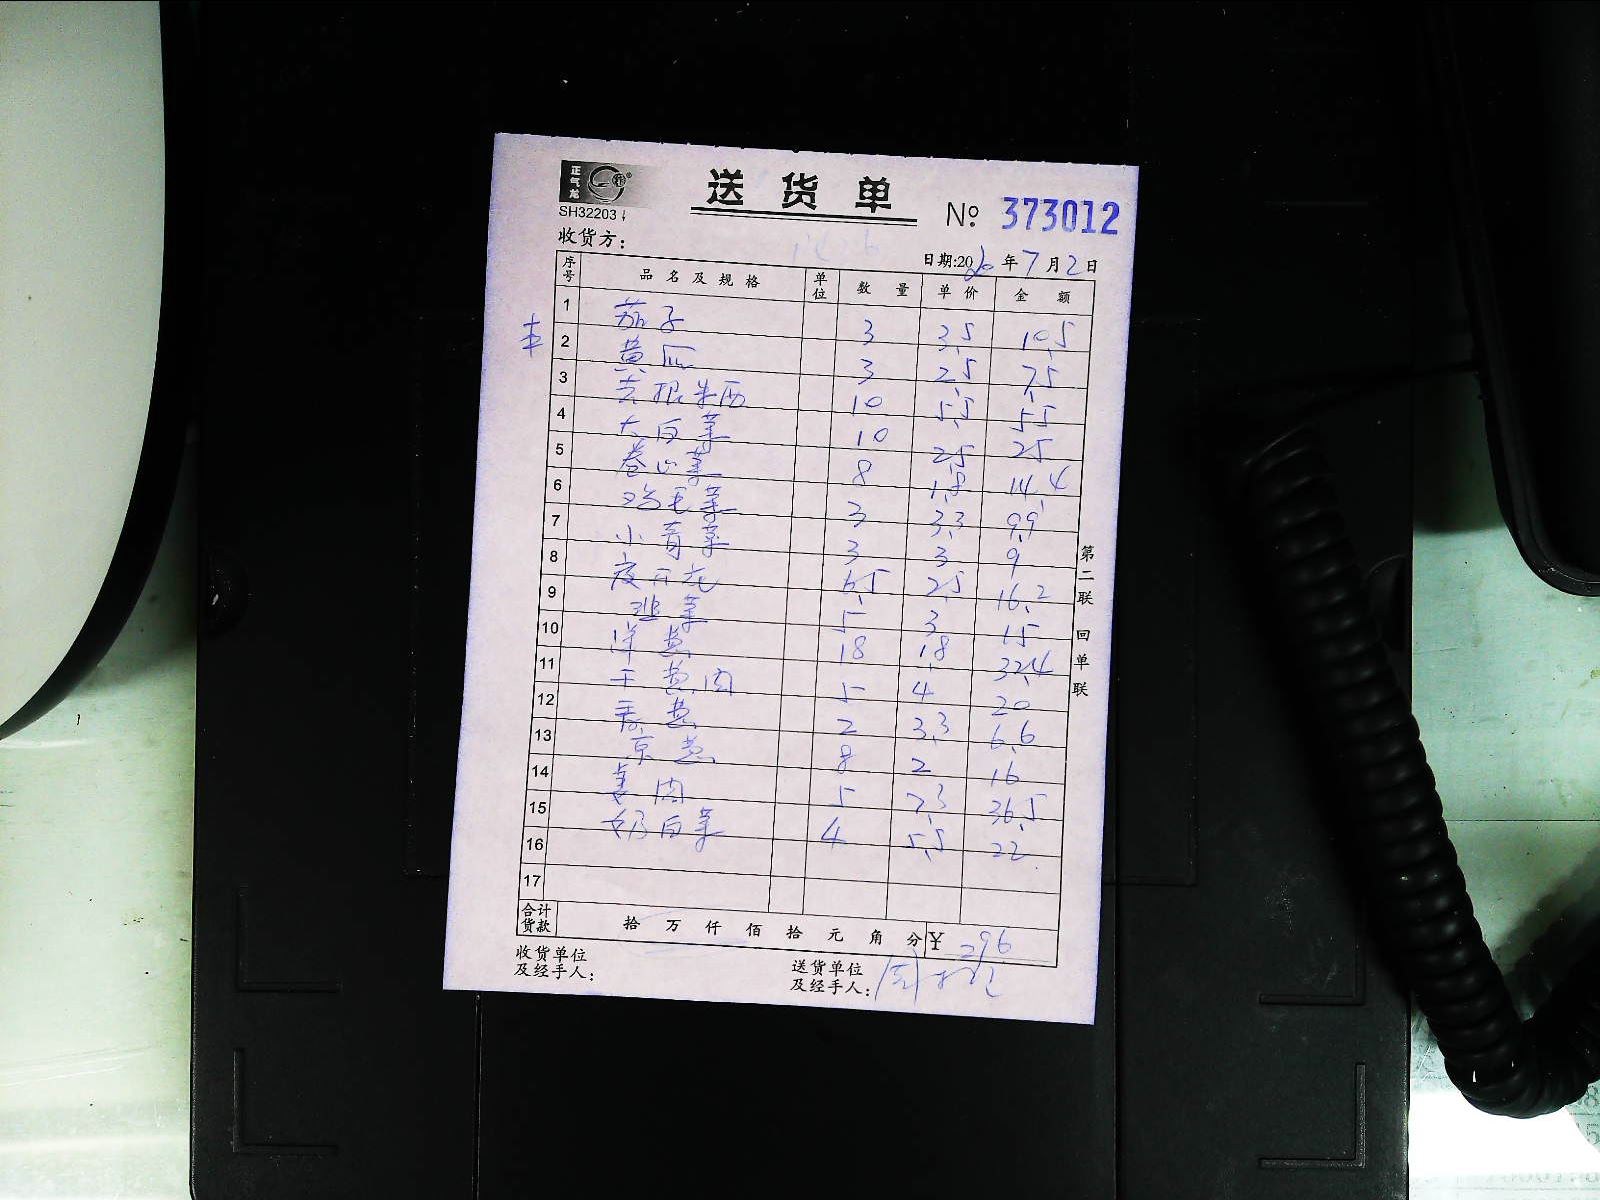 正气龙
SH32203
送货单
№ 373012
收货方:
日期:2020年7月2日
序号 品名及规格 单位 数量 单价 金额
1 茄子 3 3.5 10.5
2 黄瓜 3 2.5 7.5
3 去根米西 10 5.5 55
4 大白菜 10 2.5 25
5 卷心菜 8 1.8 14.4
6 鸡毛菜 3 3.3 9.9
7 小青菜 3 3 9
8 夜开花 6.5 2.5 16.2
9 韭菜 5 3 15
10 洋葱 18 1.8 32.4
11 干葱肉 5 4 20
12 香葱 2 3.3 6.6
13 京葱 8 2 16
14 姜肉 5 7.3 36.5
15 奶白菜 4 5.5 22
16
17
合计货款 拾 万 仟 佰 拾 元 角 分 ¥ 296
收货单位
及经手人:
送货单位
及经手人:
第二联 回单联